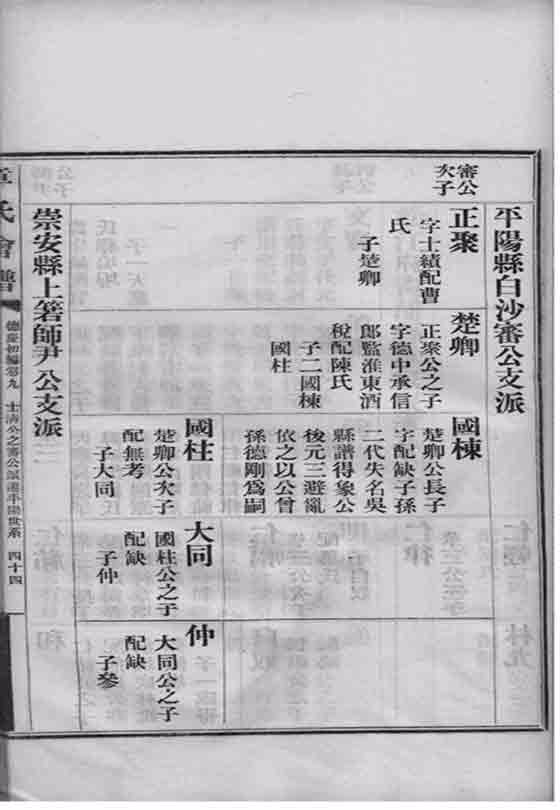 平陽縣白沙審公支派
審公
次子
正聚
字士績配曹
氏
子楚卿
楚卿
正聚公之子
字德中承信
郎監淮東酒
稅配陳氏
子二國棟
國柱
國棟
楚卿公長子
字配缺子孫
二代失名吳
縣譜得象公
後元三避亂
依之以公曾
孫德剛爲嗣
國柱
楚卿公次子
配無考
子大同
大同
國柱公之子
配缺
子仲
仲
大同公之子
配缺
子參
崇安縣上箬師尹公支派
章氏會譜
德慶初編卷九
士清公之審公派遷平陽世系
四十四